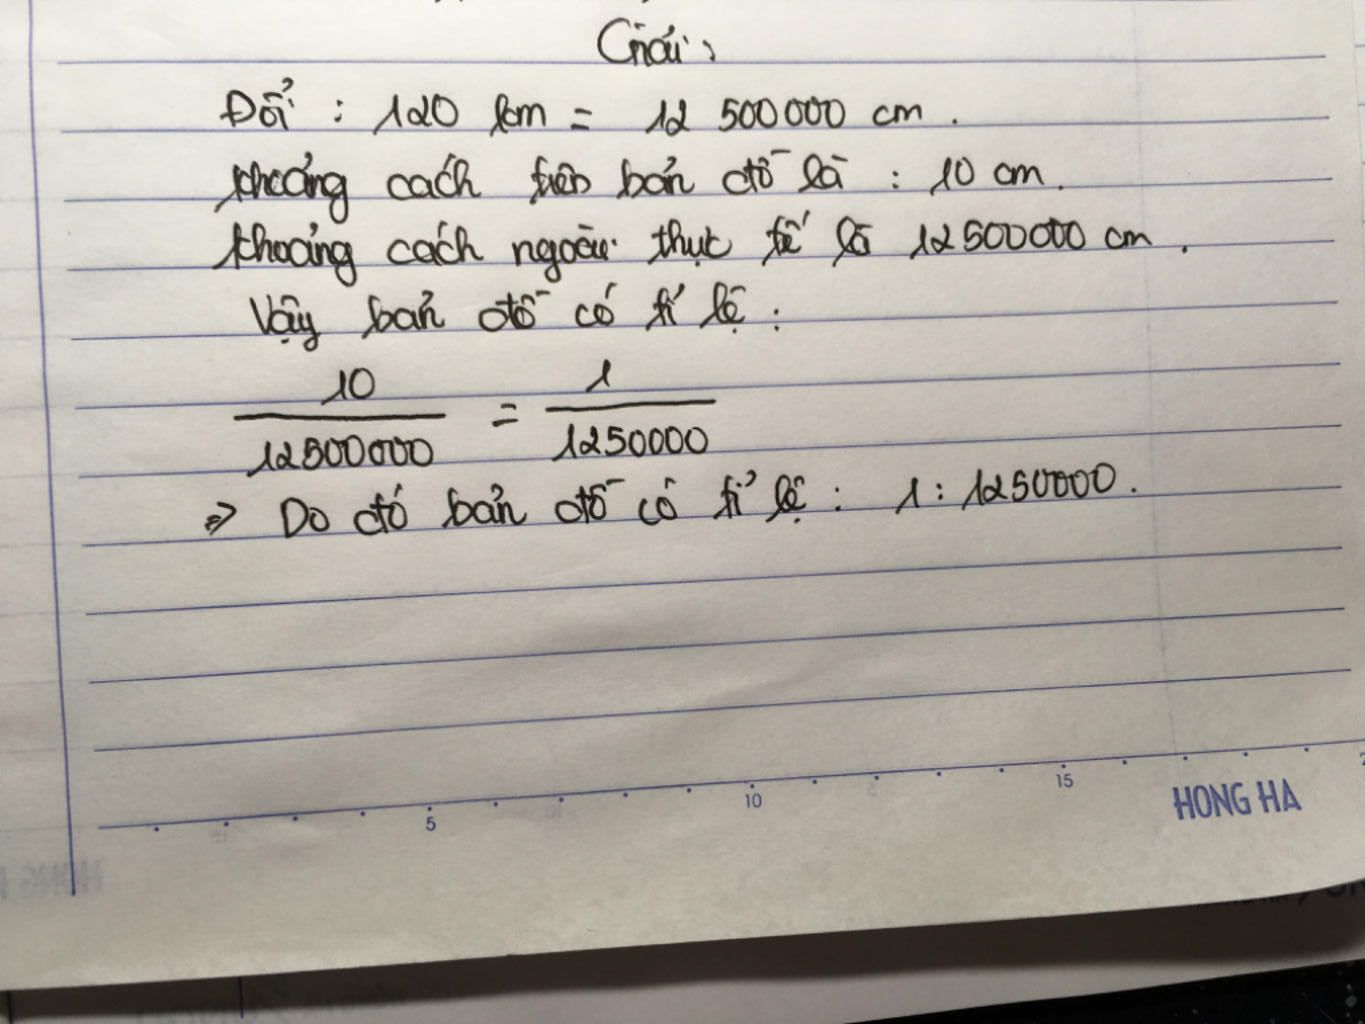 Giải:
Đổi : 120 km = 12 500000 cm.
khoảng cách trên bản đồ là : 10 cm.
khoảng cách ngoài thực tế là 12500000 cm.
Vậy bản đồ có tỉ lệ :
10 / 12500000 = 1 / 1250000
⇒ Do đó bản đồ có tỉ lệ : 1 : 1250000.
5 10 15
HONG HA